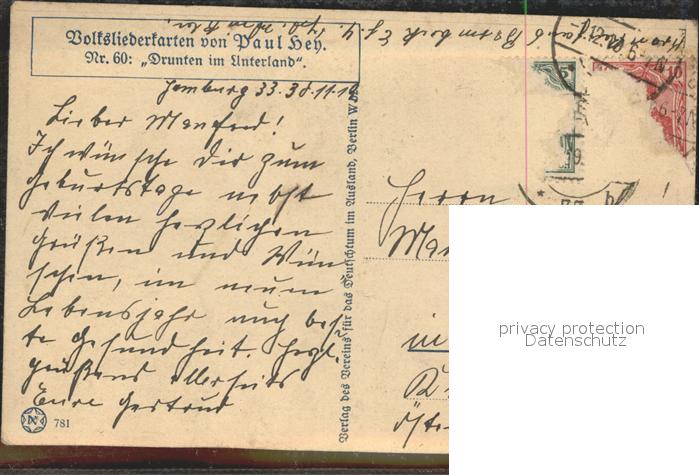 Volksliederkarten von Paul Hey.
Nr. 60: „Drunten im Unterland“.
Hamburg 33. 30.11.19
Lieber Manfred!
Ich wünsche Dir zum
Geburtstage nebst
vielen herzlichen
Grüßen und Wün
schen, im neuen
Lebensjahr auch bes
te Gesundheit. Herzl.
grüßend allerseits
Eure Gertrud
781
Verlag des Vereins für das Deutschtum im Ausland, Berlin W
Herrn
Man
in
Öste
privacy protection
Datenschutz